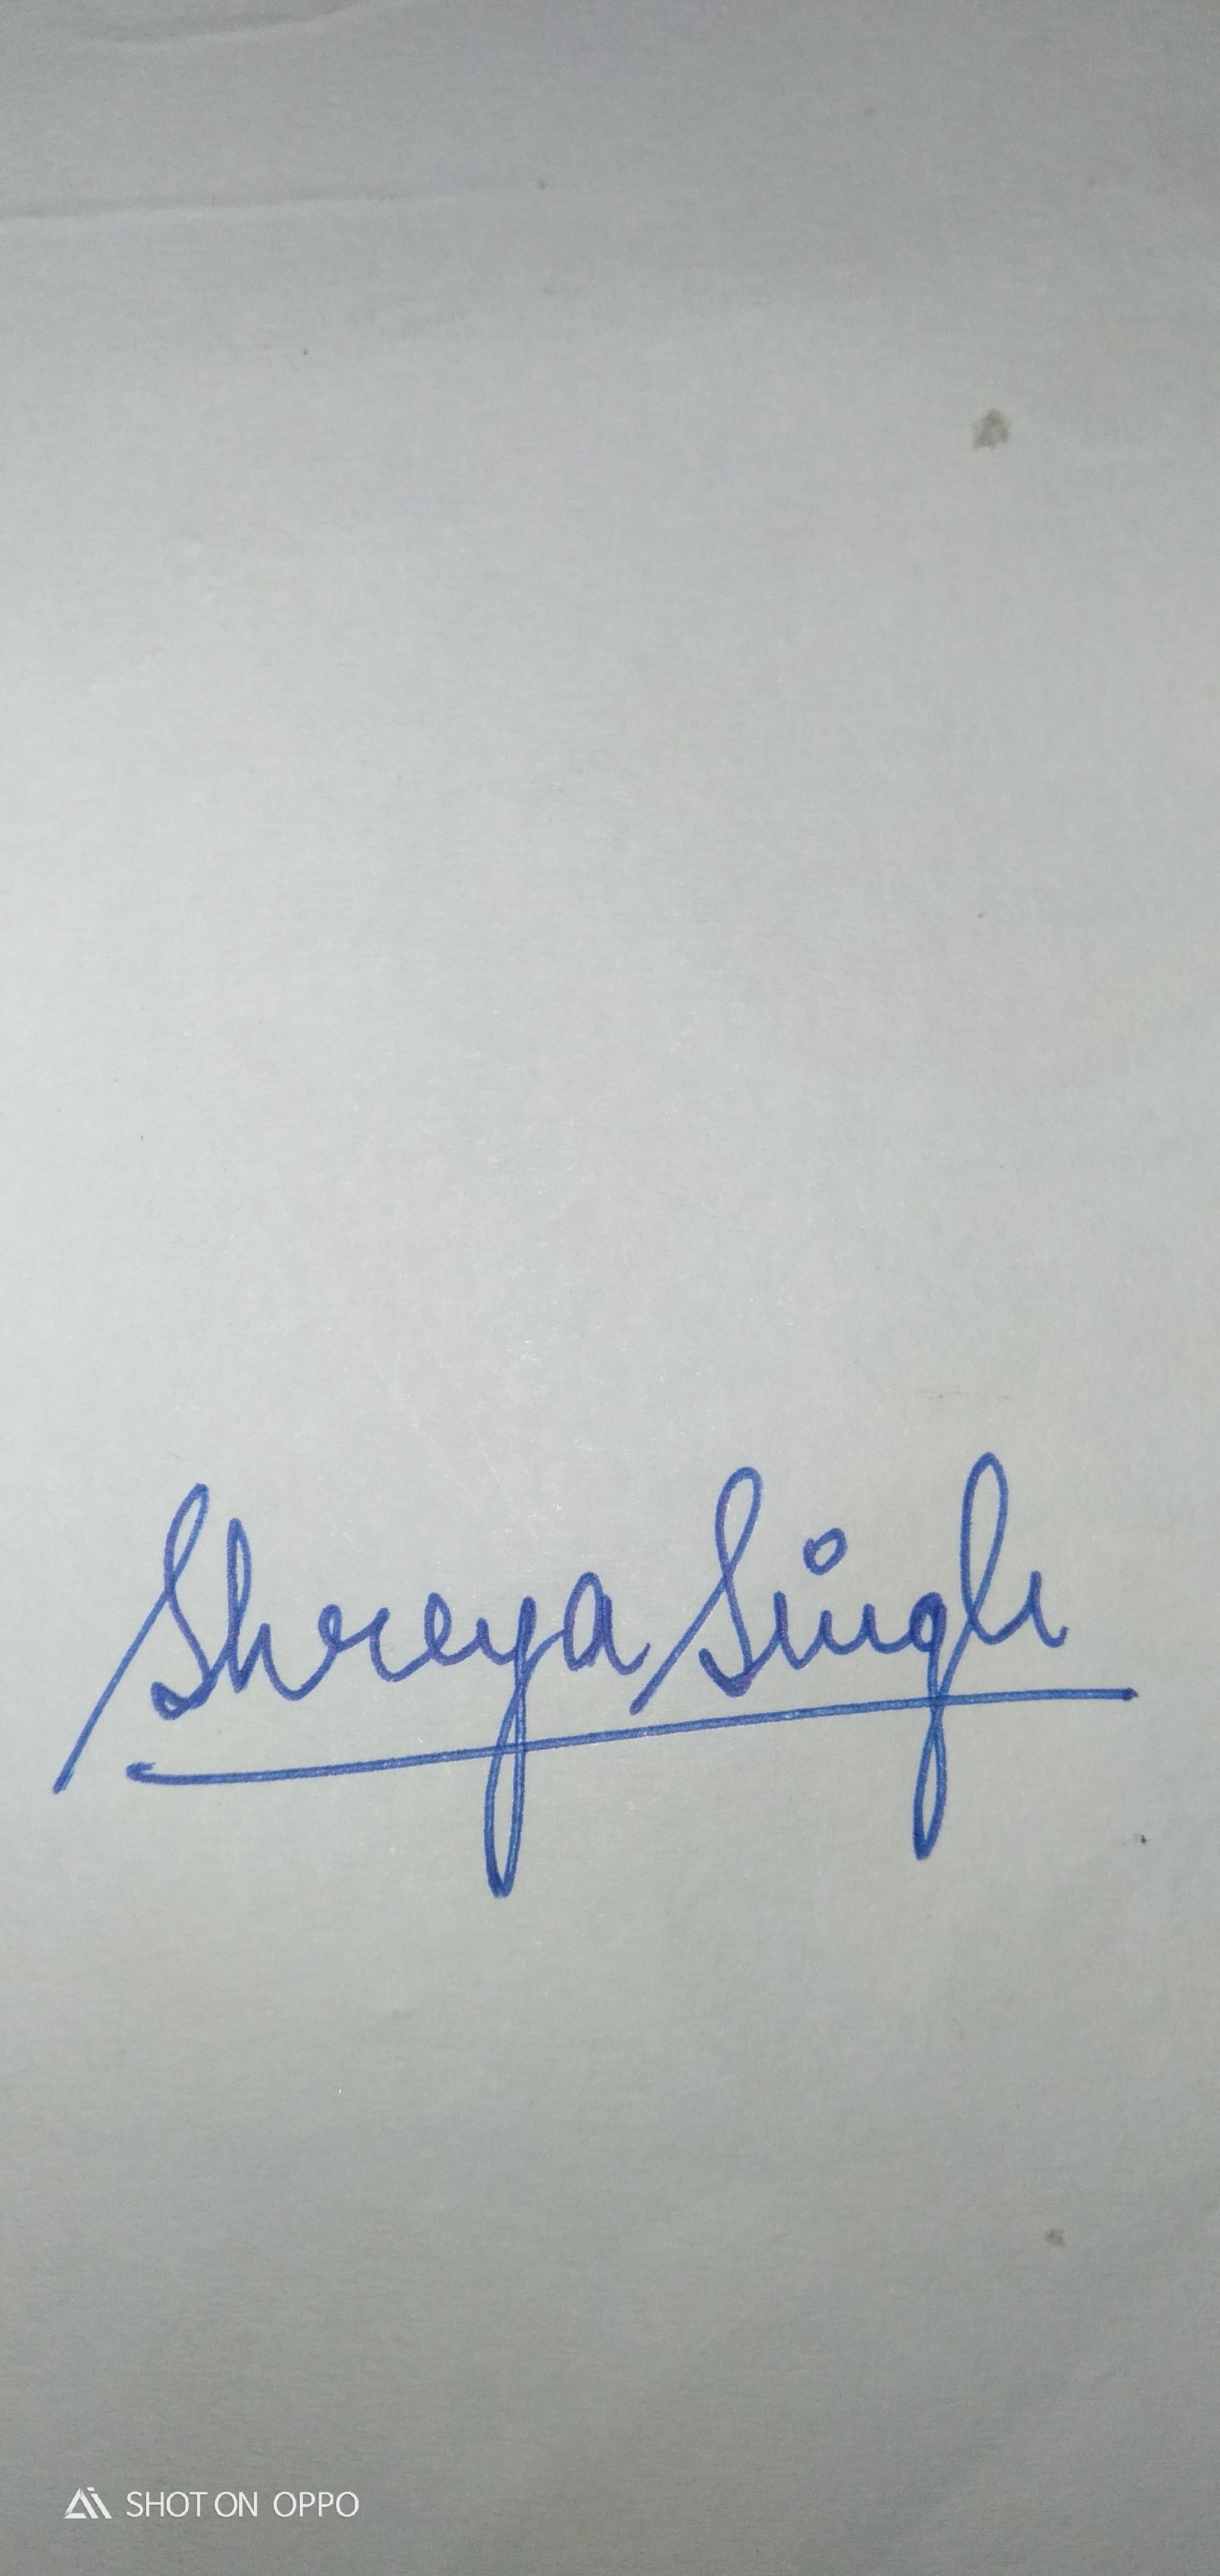 Shreya Singh
SHOT ON OPPO